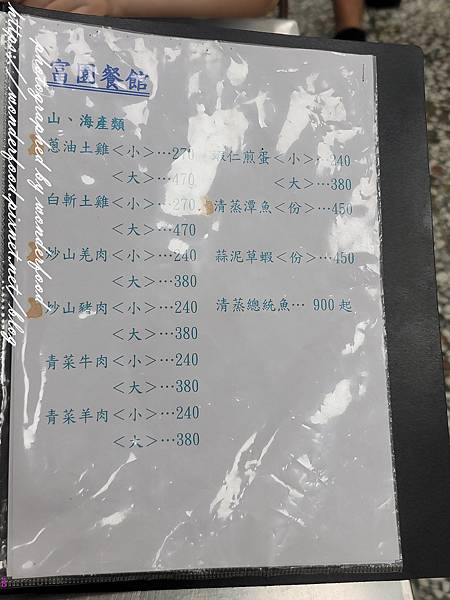 富園餐館
山、海產類
蔥油土雞<小>…270
<大>…470
白斬土雞<小>…270
<大>…470
炒山羌肉<小>…240
<大>…380
炒山豬肉<小>…240
<大>…380
青菜牛肉<小>…240
<大>…380
青菜羊肉<小>…240
<大>…380
蝦仁煎蛋<小>…240
<大>…380
清蒸潭魚<份>…450
蒜泥草蝦<份>…450
清蒸總統魚… 900起
https://wonderfood.pixnet.net/blog
photographed by wonderfood